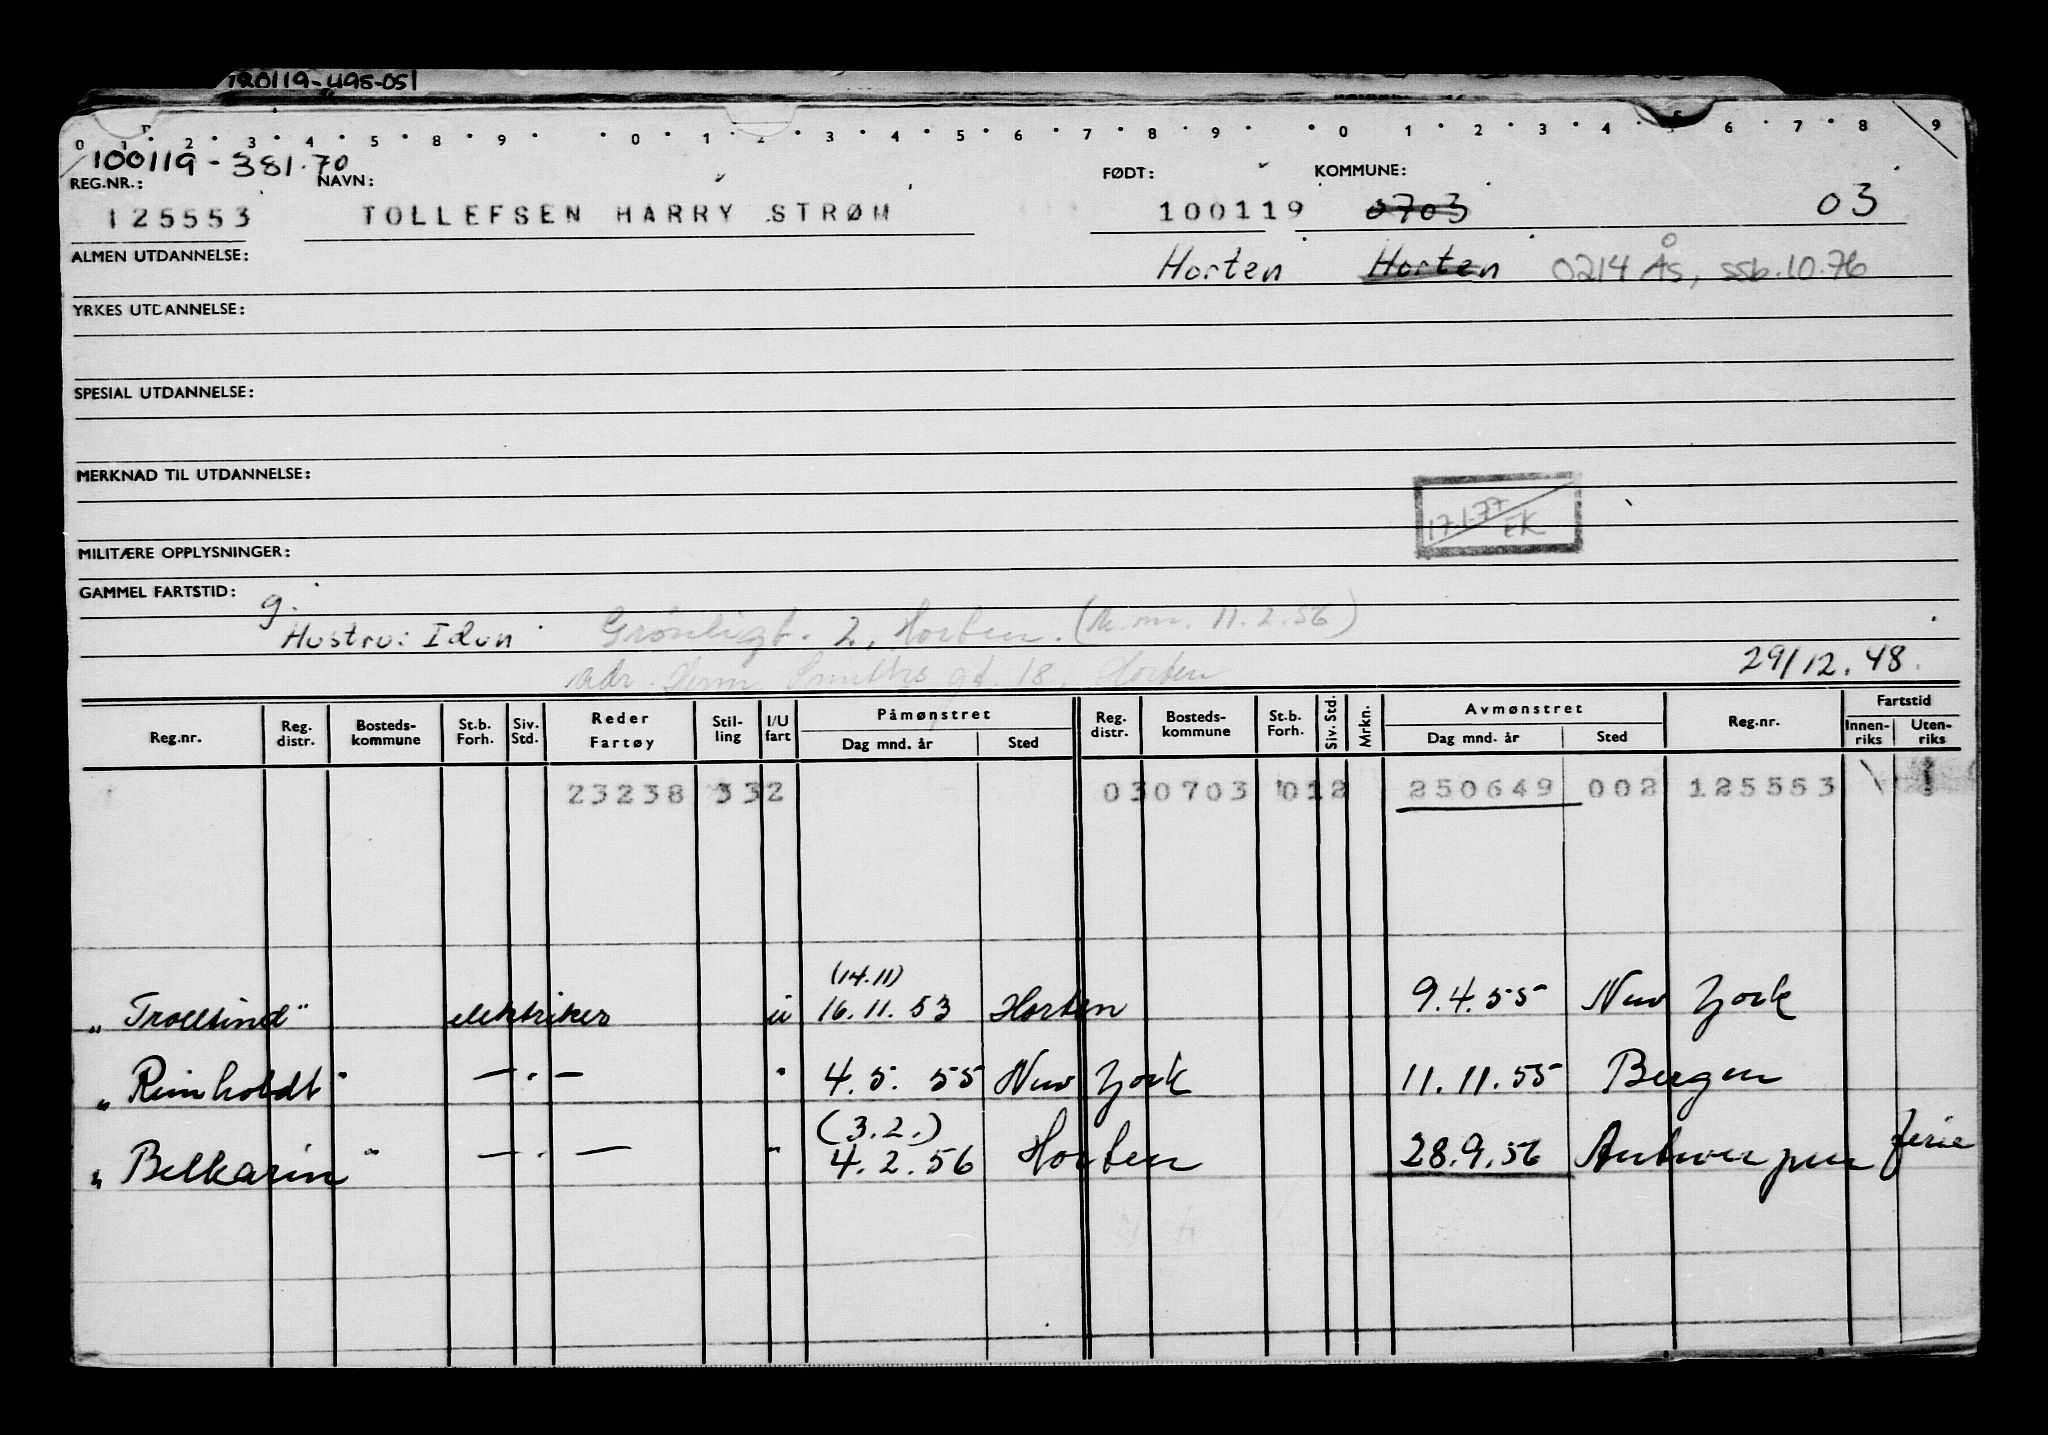 120119-495-051
0 1 2 3 4 5 8 9 0 1 2 3 4 5 6 7 8 9 0 1 2 3 4 5 6 7 8 9
100119-381.70
REG.NR.: NAVN: FØDT: KOMMUNE:
125553 TOLLEFSEN HARRY STRØM 100119 0703 03
ALMEN UTDANNELSE: Horten Horten 0214 Ås, ssb.10.76
YRKES UTDANNELSE:
SPESIAL UTDANNELSE:
MERKNAD TIL UTDANNELSE:
17.1.77 EK
MILITÆRE OPPLYSNINGER:
GAMMEL FARTSTID: g.
Hustru: Idun Grønligt. 2, Horten. 11.2.56)
adr. gt. 18, Horten 29/12.48.
Reg.nr. Reg. distr. Bosteds-kommune St.b. Forh. Siv. Std. Reder Fartøy Stil-ling I/U fart Påmønstret Dag mnd. år Sted Reg. distr. Bosteds-kommune St.b. Forh. Siv. Std. Mrkn. Avmønstret Dag mnd. år Sted Reg.nr. Fartstid Innen-riks Uten-riks
23238 332 030703 012 250649 002 125553
(14.11)
"Trolltind" elektriker u 16.11.53 Horten 9.4.55 New York
"Rimholdt" —.— " 4.5.55 New York 11.11.55 Bergen
(3.2.)
"Belkarin" —.— " 4.2.56 Horten 28.9.56 Antwerpen ferie